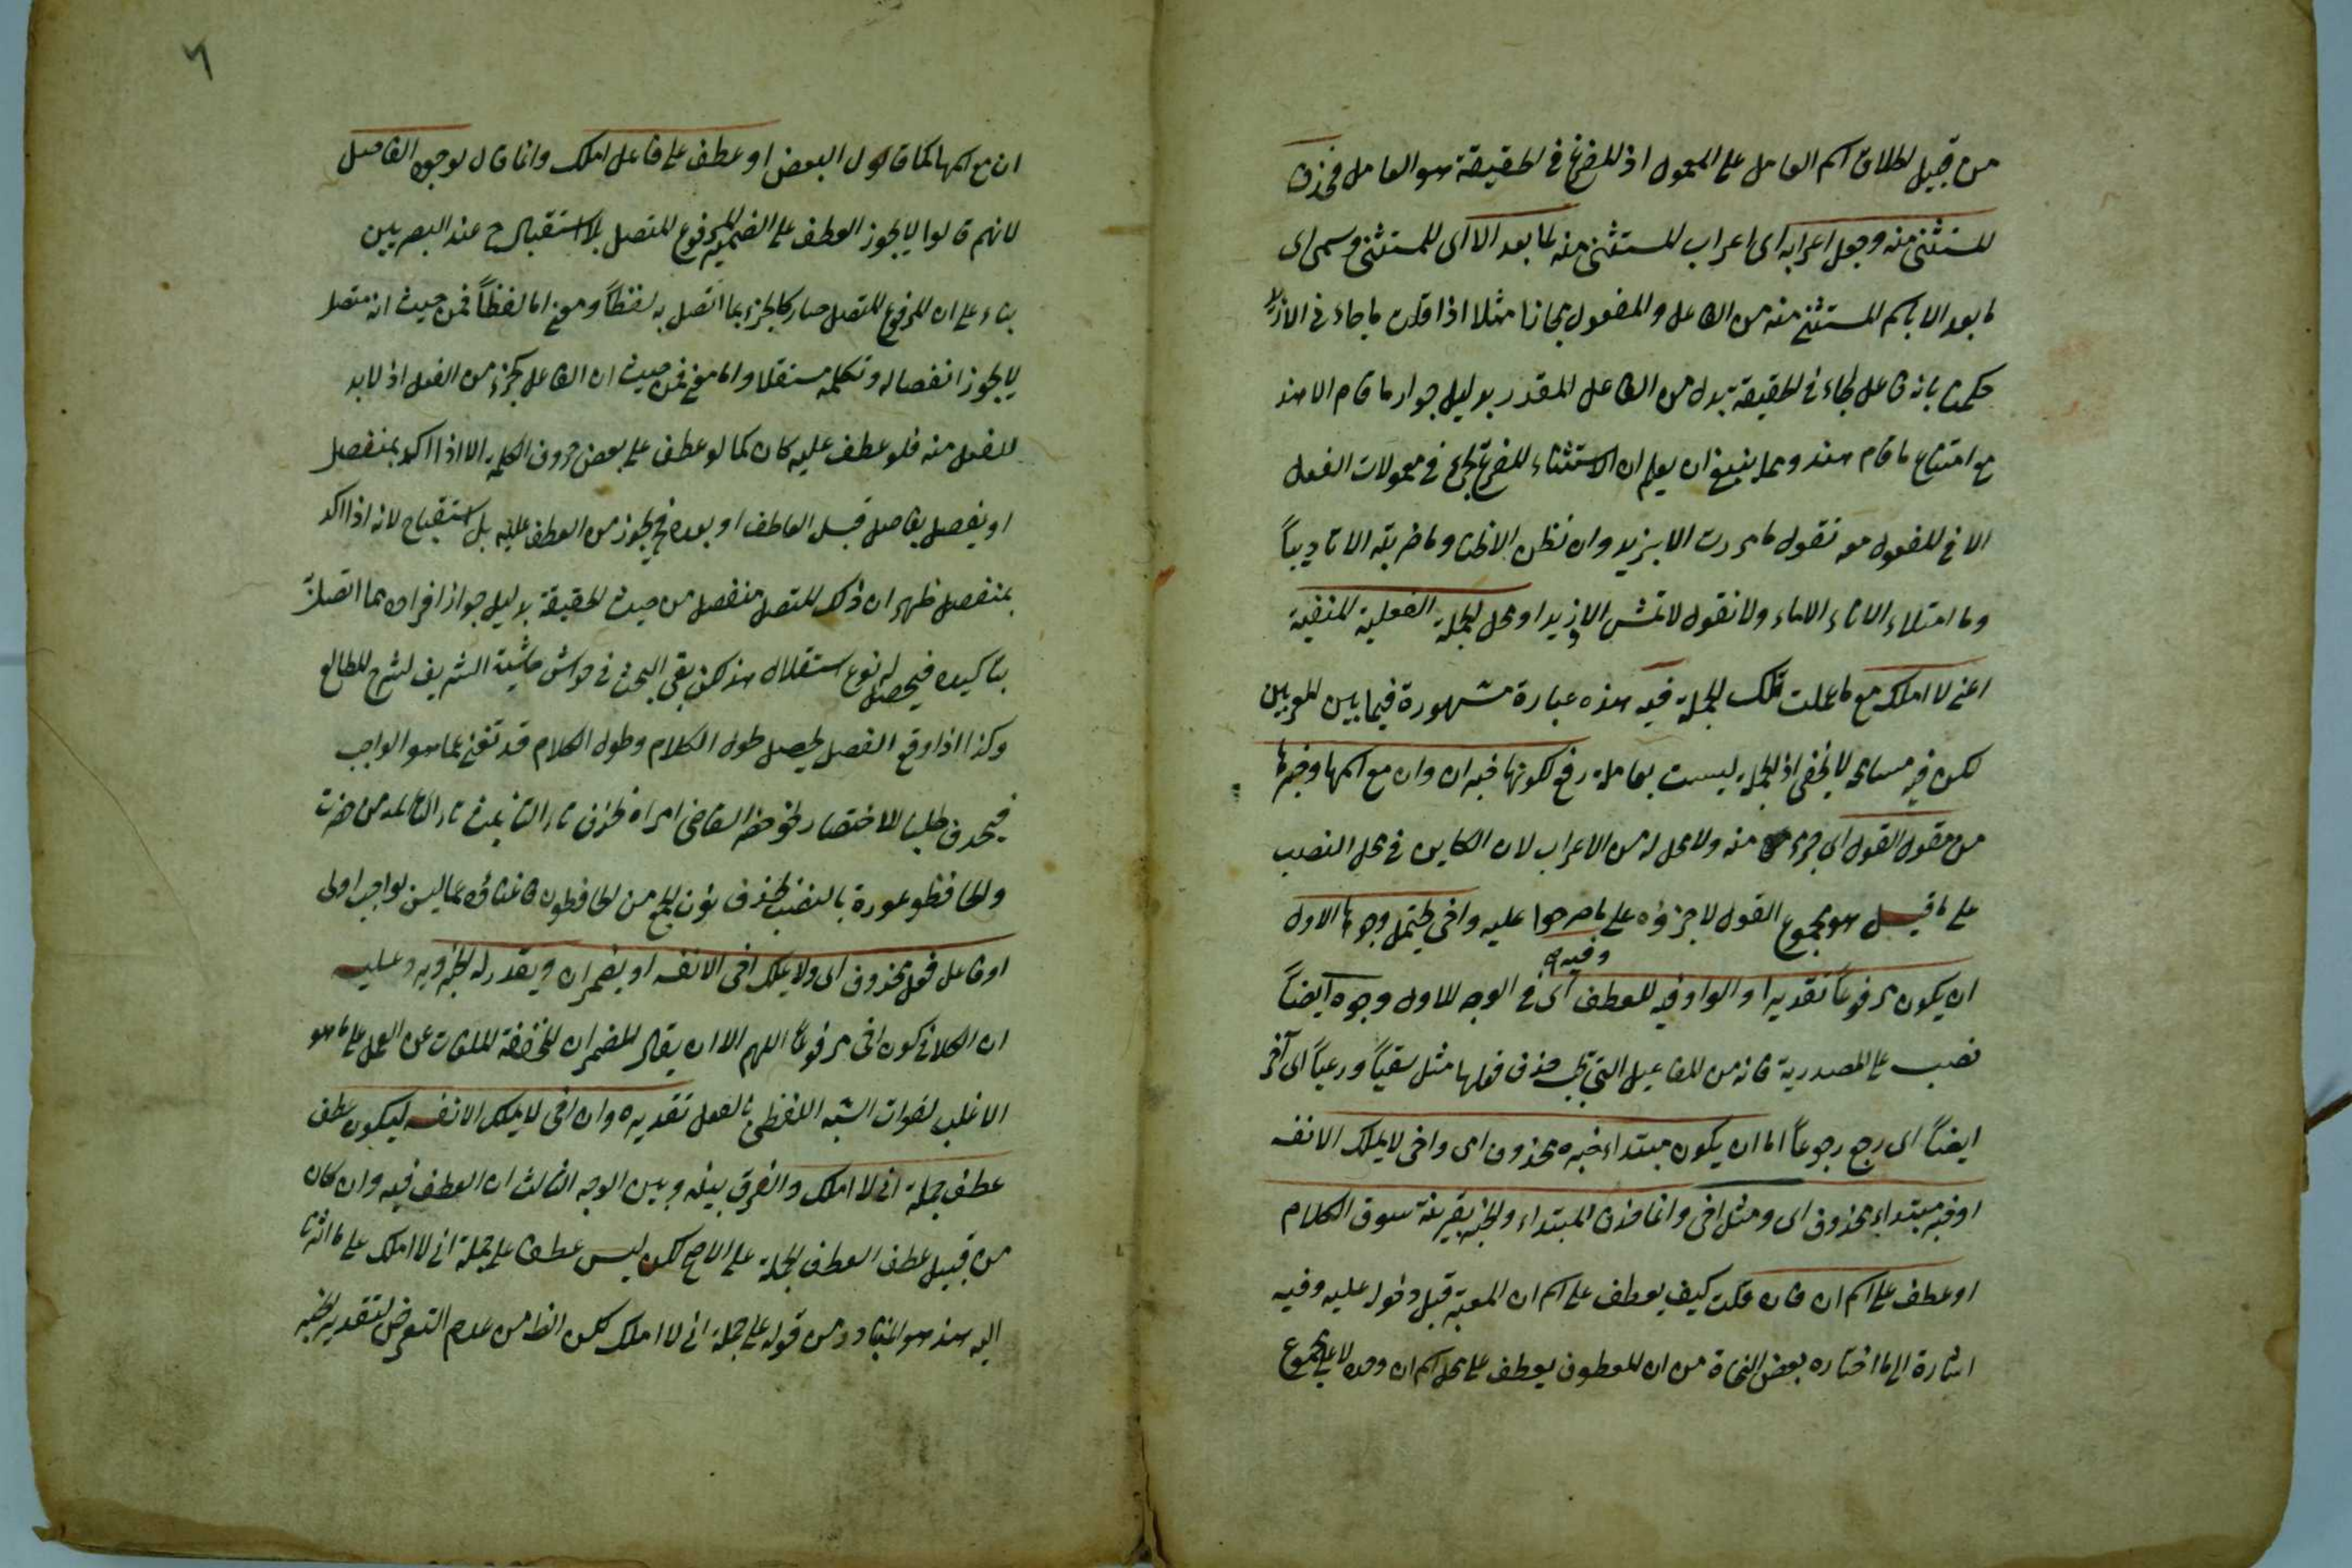 من قبيل اطلاق اسم العامل على المعمول اذ المفرغ فى الحقيقة هو العامل فحذف
المستثنى منه وجعل اعرابه اى اعراب المستثنى منه لما بعد الا اى المستثنى وسمى اى
ما بعد الا باسم المستثنى منه من الفاعل والمفعول مجازا مثلا اذا قلت ما جاء نى الا زيد
حكمت بانه فاعل لجاء وفى الحقيقة بدل من الفاعل المقدر بدليل جواز ما قام الا هند
مع امتناع ما قام هند ومما ينبغى ان يعلم ان الاستثناء المفرغ يجئ فى معمولات الفعل
الا فى المفعول معه تقول ما مررت الا بزيد وان نظن الا ظنا وما ضربته الا تاديباً
وما امتلاء الاناء الا ماء ولا تقول لا تمش الا وزيدا ومحل الجملة الفعلية المنفية
اعنى لا املك مع ما عملت تلك الجملة فيه هذه عبارة مشهورة فيما بين المعربين
لكن فيه مسامحة لا يخفى اذ الجملة ليست بعاملة رفع لكونها خبر ان وان مع اسمها وخبرها
من مقول القول اى جزء منه ولا محل له من الاعراب لان الكاين فى محل النصب
على ما قيل هو مجموع القول لا جزؤه على ما صرحوا عليه واخى يحتمل وجوها الاول
وفيه
ان يكون مرفوعاً تقديرا والواو فيه للعطف اى فى الوجه الاول وجوه ايضاً
نصب على المصدرية فانه من المفاعيل التى يجب حذف فعلها مثل سقياً ورعياً اى آخر
ايضاً اى رجع رجوعاً اما ان يكون مبتداء خبره محذوف اى واخى لا يملك الا نفسه
او خبر مبتداء محذوف اى ومثل اخى وانما حذف المبتداء والخبر بقرينة سوق الكلام
او عطف على اسم ان فان قلت كيف يعطف على اسم ان المعية قبل دخوله عليه وفيه
اشارة الى ما اختاره بعض النحاة من ان المعطوف يعطف على محل اسم ان وحده لا على مجموع
٦
ان مع اسمها كما قال البعض او عطف على فاعل املك وانما قال لوجود الفاصل
لانهم قالوا لا يجوز العطف على الضمير المرفوع المتصل بلا استقباح عند البصريين
بناء على ان المرفوع المتصل صار كالجزء مما اتصل به لفظاً ومعنى اما لفظاً فمن حيث انه متصل
لا يجوز انفصاله وتكلمه مستقلا واما معنى فمن حيث ان الفاعل كجزء من الفعل اذ لا بد
للفعل منه فلو عطف عليه كان كما لو عطف على بعض حروف الكلمة الا اذا اكد بمنفصل
او يفصل بفاصل قبل العاطف او بعده فيجوز العطف عليه بلا استقباح لانه اذا اكد
بمنفصل ظهر ان ذلك المتصل منفصل من حيث الحقيقة بدليل جواز افراده مما اتصل
بتاكيده فيحصل له نوع استقلال هذا لكن بقى البحث فى حواشى حاشية الشريف لشرح المطالع
وكذا اذا وقع الفصل يحصل طول الكلام وطول الكلام قد تغنى عما هو الواجب
فيحذف طلبا للاختصار نحو حضر القاضى امراة بحذف تاء التانيث
والحافظو عورة بالنصب بحذف نون الجمع من الحافظون فاغناؤه عما ليس بواجب اولى
او فاعل فعل محذوف اى ولا يملك اخى الا نفسه او بضمير ان ويقدر له الخبر ويرد عليه
ان الكلام فى كون اخى مرفوعاً اللهم الا ان يقال المضمر ان المخففة الملغاة عن العمل على ما هو
الاغلب لفوات الشبه اللفظى بالفعل تقديره وان اخى لا يملك الا نفسه ليكون عطف
عطف جملة انى لا املك والفرق بينه وبين الوجه الثالث ان العطف فيه وان كان
من قبيل عطف الجملة على الاصح لكن ليس عطفا على جملة انى لا املك على ما اشرنا
اليه هذا هو المتبادر من قوله على جملة انى لا املك لكن الظ من عدم التعرض لتقدير الخبر